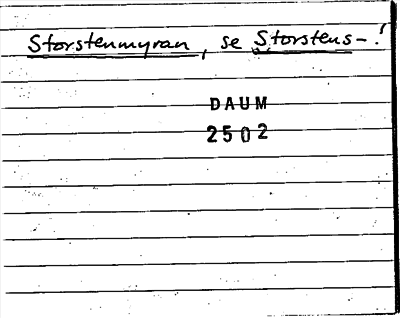 Storstenmyran, se Storstens-!
DAUM
2502